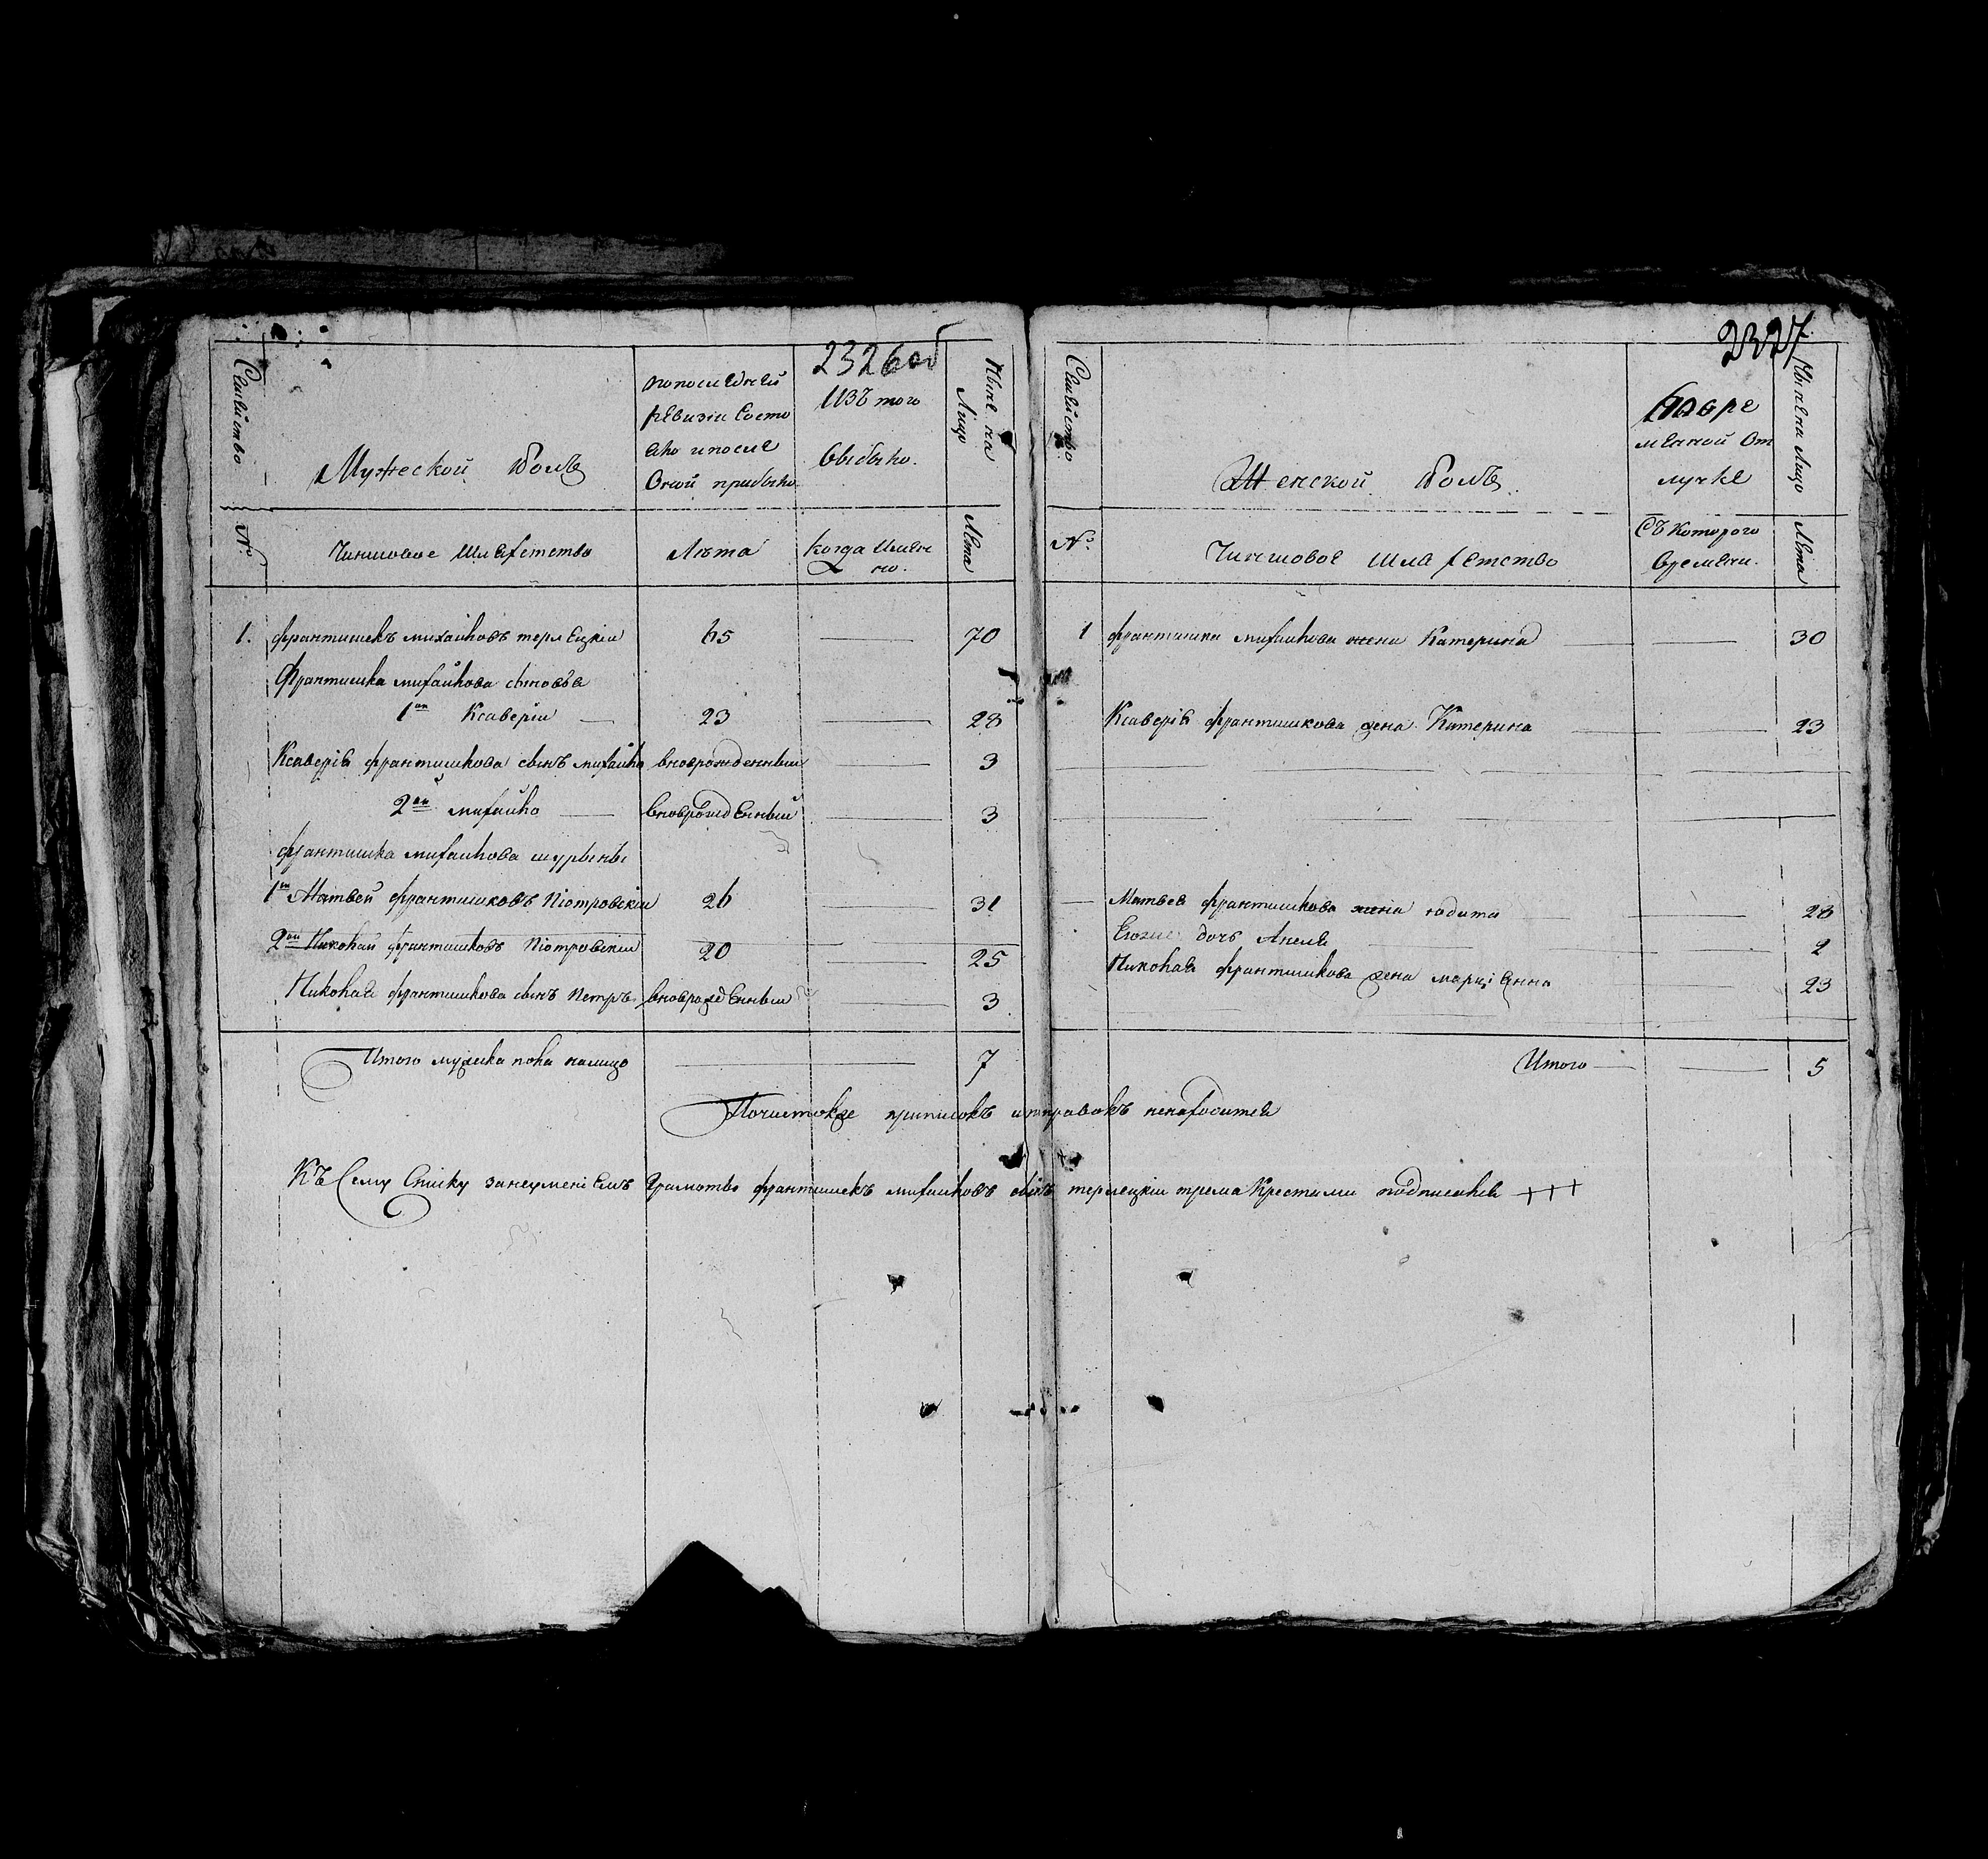 2326 об
Семейство
Мужеской Полъ
попоследней
ревизіи Состо
яло ипосле
Оной прибыло
ИЗЪ того
выбыло.
Ныне на
Лицо
№
Чиншовое Шляхетство
Лѣта
когда Имен
но.
Лѣта
1. франтишекъ михайловъ терлецкіи 65 70
Франтишка михайлова сыновья
1ои Ксаверіи 23 28
Ксаверія франтишкова сынъ михайло вноврожденныи 3
2ои михайло вноврожденный 3
франтишка михайлова шурыны
1ои Матвей франтишковъ Піотровскіи 26 31
2ои Николай франтишковъ Піотровскіи 20 25
Николая франтишкова сынъ Петръ вноврожденныи 3
Итого мужска пола налицо 7
2327
Семейство
Женской Полъ
Вовре
менной От
лучке
Ныне на Лицо
№
Чиншовое Шляхетство
СЪ Которого
времени.
Лѣта
1 франтишка михайлова жена Катерина 30
Ксаверія франтишкова жена Катерина 23
Матвея франтишкова жена юдита 28
Егоже дочъ Анеля 2
Николая франтишкова жена марціянна 23
Итого 5
Почисткже приписокъ ипоправокъ ненаходится
КЪ Сему Списку занеуменіемъ Грамоты франтишекъ михайловъ сынъ терлецкіи трема Крестами подписался +++